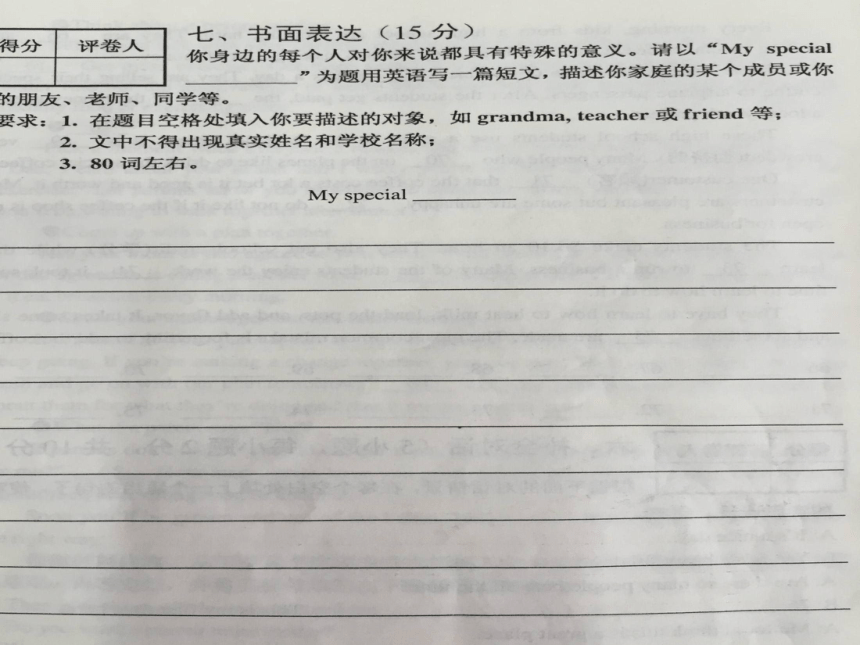 得分 评卷人
七、书面表达（15 分）
你身边的每个人对你来说都具有特殊的意义。请以“My special
”为题用英语写一篇短文，描述你家庭的某个成员或你
的朋友、老师、同学等。
要求：1. 在题目空格处填入你要描述的对象，如 grandma, teacher 或 friend 等；
2. 文中不得出现真实姓名和学校名称；
3. 80 词左右。
My special